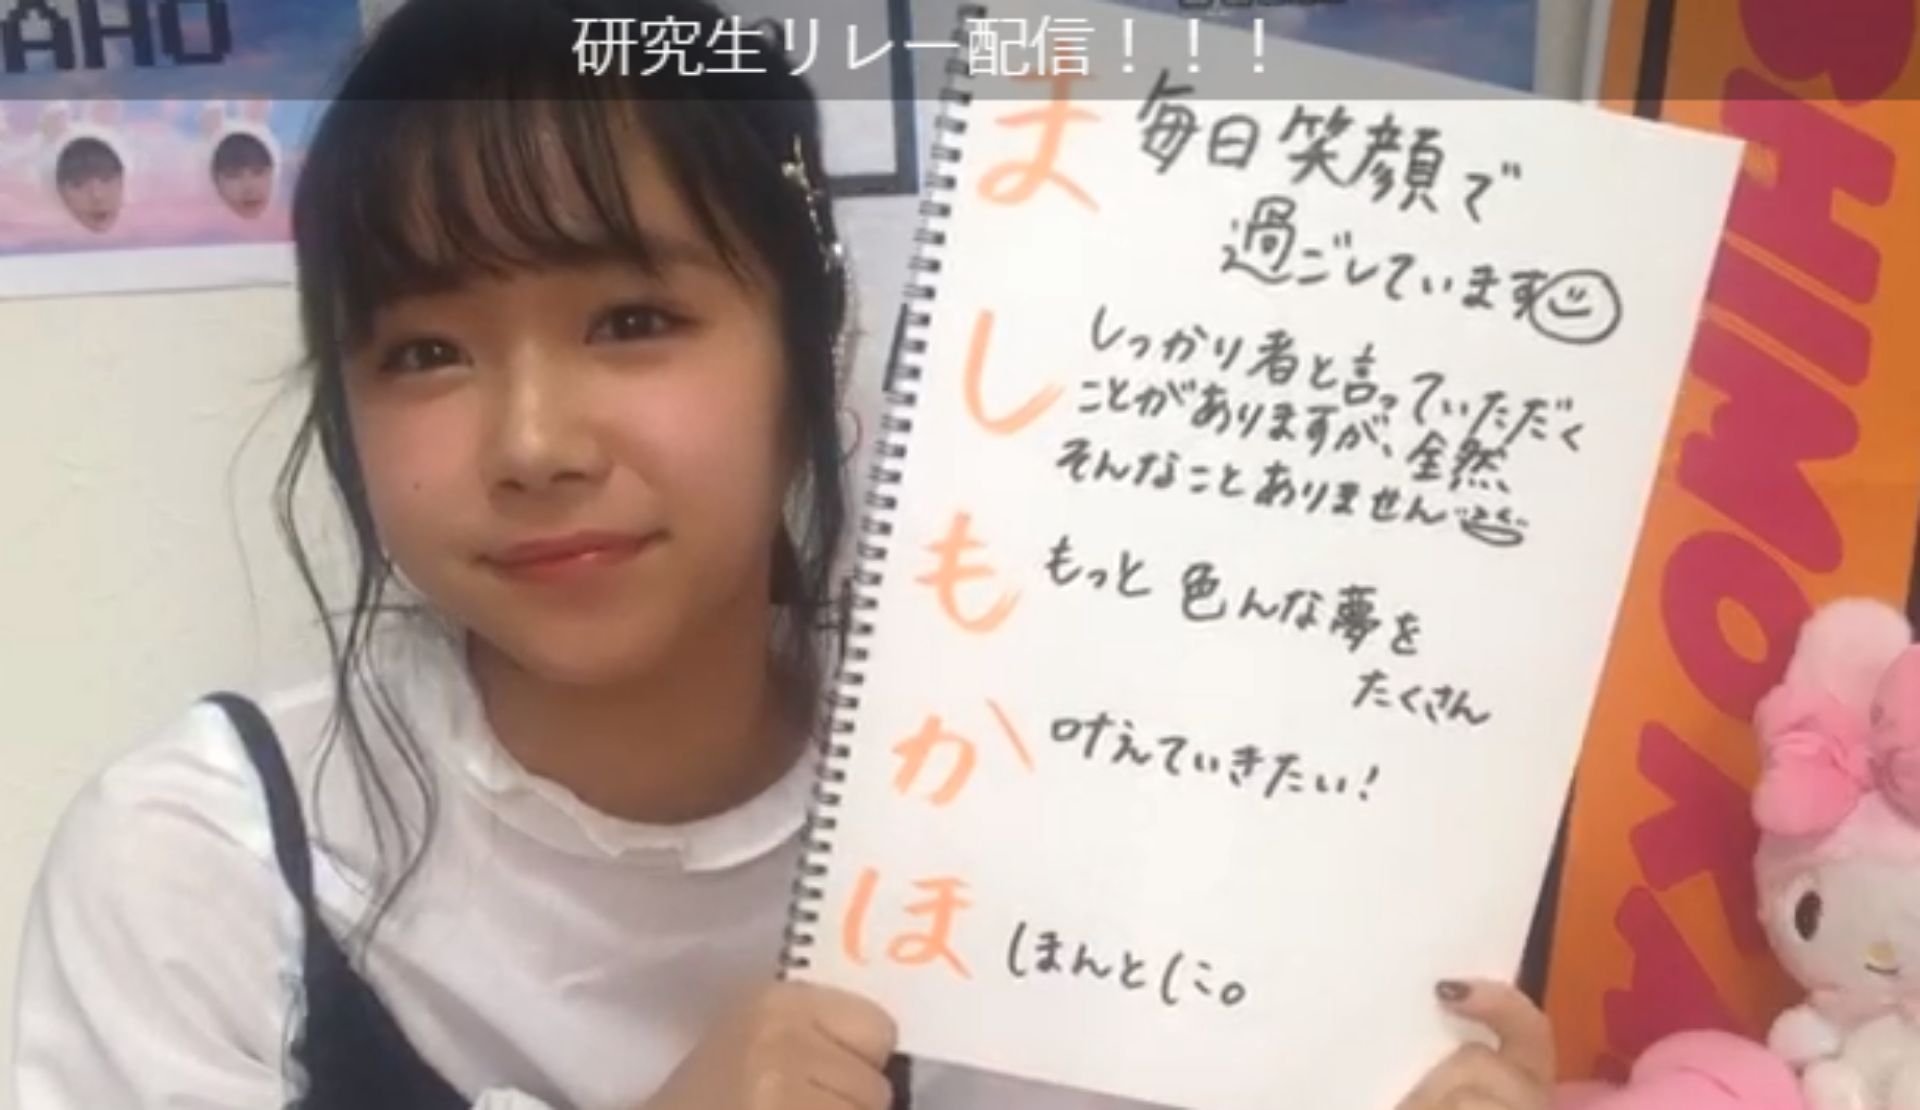 研究生リレー配信！！！
AHO
ま 毎日笑顔で
過ごしています
し しっかり者と言っていただく
ことがありますが、全然
そんなことありません
も もっと色んな夢を
たくさん
か 叶えていきたい！
ほ ほんとに。